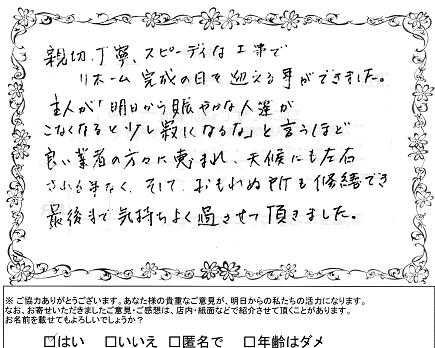 親切、丁寧、スピーディな工事で
リホーム完成の日を迎える事ができました。
主人が「明日から賑やかな人達が
こなくなると少し寂になるな」と言うほど
良い業者の方々に恵まれ、天候にも左右
される事なく、そして、おもわぬ所も修繕でき
最後まで気持ちよく過させて頂きました。
※ご協力ありがとうございます。あなた様の貴重なご意見が、明日からの私たちの活力になります。
なお、お寄せいただきましたご意見・ご感想は、店内・紙面などで紹介させて頂くことがあります。
お名前を載せてもよろしいでしょうか?
☑はい □いいえ □匿名で □年齢はダメ